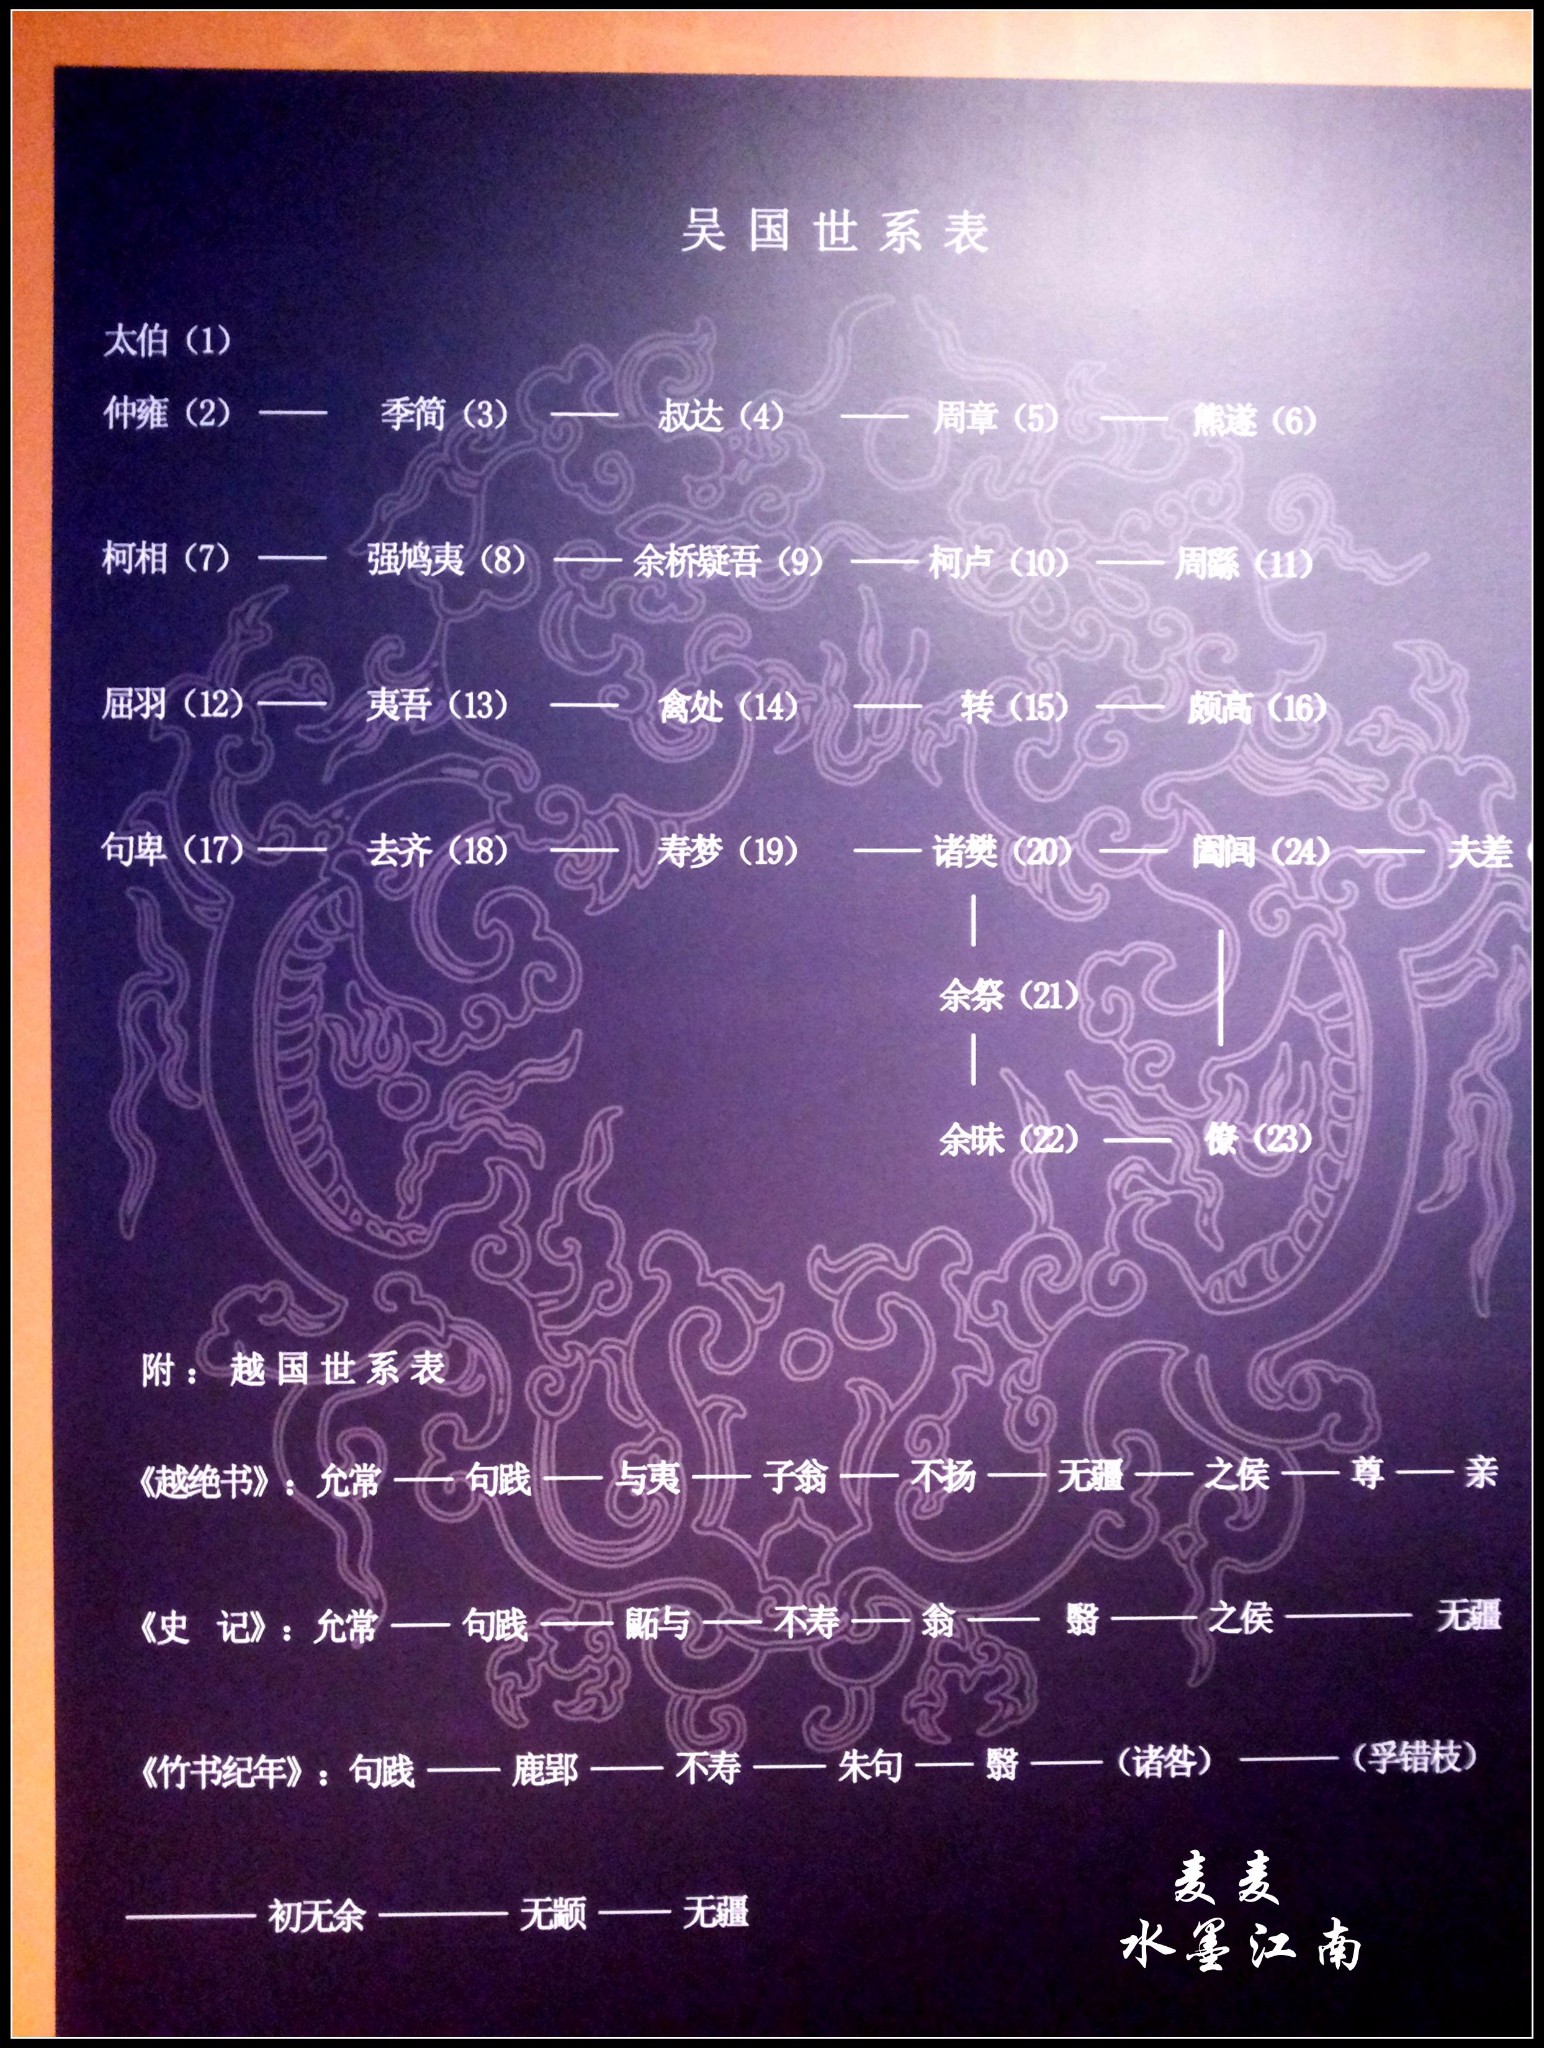 吴国世系表
太伯（1）
仲雍（2）—— 季简（3）—— 叔达（4）—— 周章（5）—— 熊遂（6）
柯相（7）—— 强鸠夷（8）——余桥疑吾（9）——柯卢（10）——周繇（11）
屈羽（12）—— 夷吾（13）—— 禽处（14）—— 转（15）—— 颇高（16）
句卑（17）—— 去齐（18）—— 寿梦（19）——诸樊（20）—— 阖闾（24）—— 夫差（
余祭（21）
余昧（22）—— 僚（23）
附：越国世系表
《越绝书》：允常——句践——与夷——子翁——不扬——无疆——之侯——尊——亲
《史 记》：允常——句践——鼫与——不寿——翁——翳——之侯——无疆
《竹书纪年》：句践——鹿郢——不寿——朱句——翳——（诸咎）——（孚错枝）
——初无余——无颛——无疆
麦麦
水墨江南